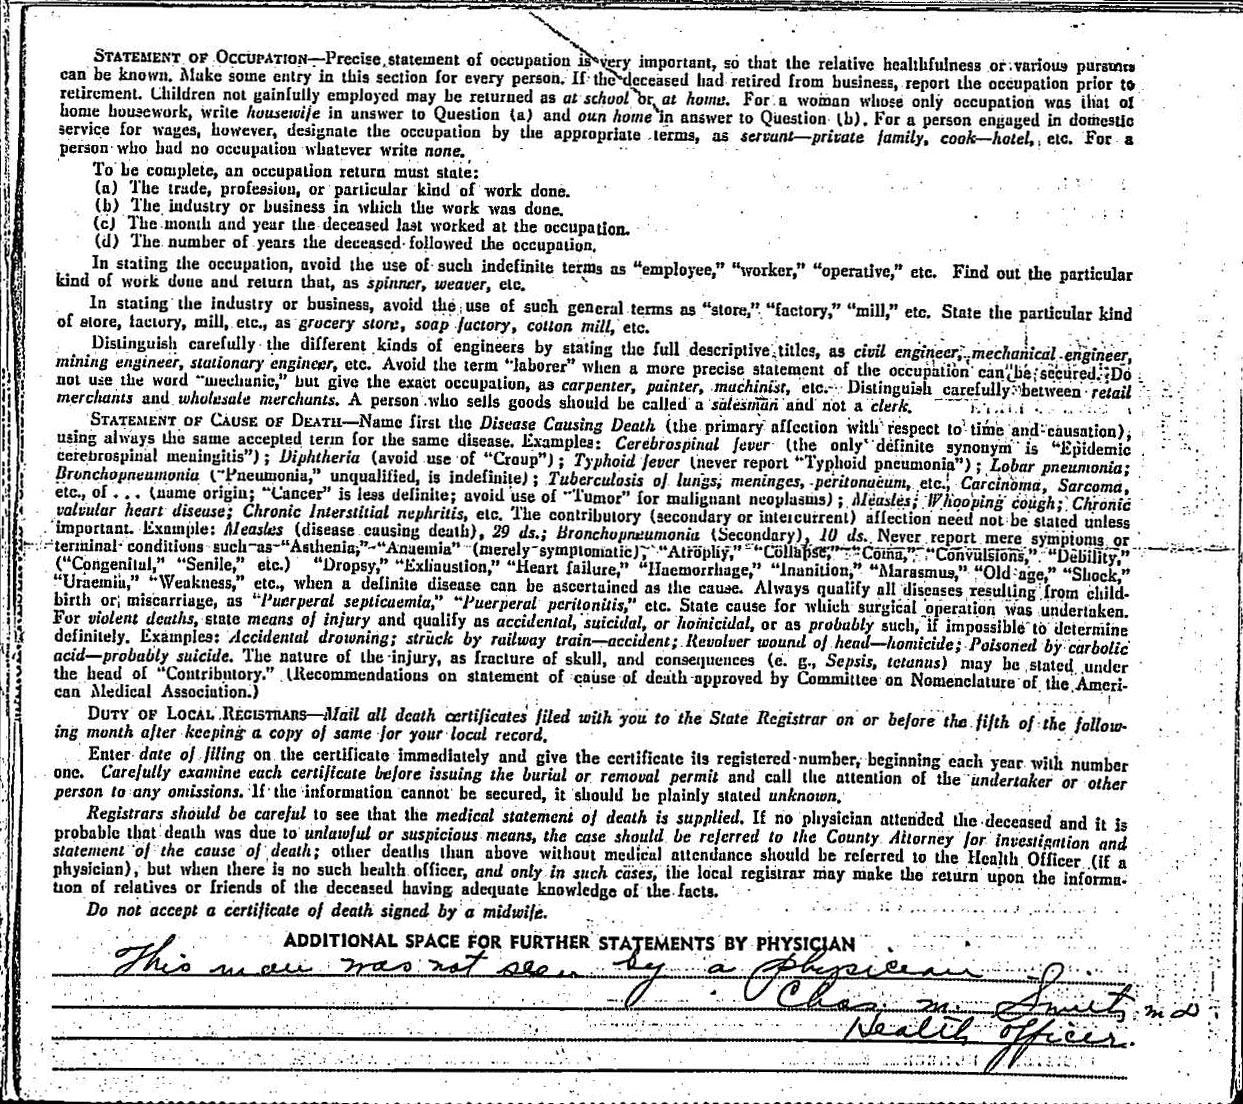 STATEMENT OF OCCUPATION—Precise statement of occupation is very important, so that the relative healthfulness or various pursuits
can be known. Make some entry in this section for every person. If the deceased had retired from business, report the occupation prior to
retirement. Children not gainfully employed may be returned as at school or at home. For a woman whose only occupation was that of
home housework, write housewife in answer to Question (a) and own home in answer to Question (b). For a person engaged in domestic
service for wages, however, designate the occupation by the appropriate terms, as servant—private family, cook—hotel, etc. For a
person who had no occupation whatever write none.
To be complete, an occupation return must state:
(a) The trade, profession, or particular kind of work done.
(b) The industry or business in which the work was done.
(c) The month and year the deceased last worked at the occupation.
(d) The number of years the deceased followed the occupation.
In stating the occupation, avoid the use of such indefinite terms as “employee,” “worker,” “operative,” etc. Find out the particular
kind of work done and return that, as spinner, weaver, etc.
In stating the industry or business, avoid the use of such general terms as “store,” “factory,” “mill,” etc. State the particular kind
of store, factory, mill, etc., as grocery store, soap factory, cotton mill, etc.
Distinguish carefully the different kinds of engineers by stating the full descriptive titles, as civil engineer, mechanical engineer,
mining engineer, stationary engineer, etc. Avoid the term “laborer” when a more precise statement of the occupation can be secured. Do
not use the word “mechanic,” but give the exact occupation, as carpenter, painter, machinist, etc. Distinguish carefully between retail
merchants and wholesale merchants. A person who sells goods should be called a salesman and not a clerk.
STATEMENT OF CAUSE OF DEATH—Name first the Disease Causing Death (the primary affection with respect to time and causation),
using always the same accepted term for the same disease. Examples: Cerebrospinal fever (the only definite synonym is “Epidemic
cerebrospinal meningitis”); Diphtheria (avoid use of “Croup”); Typhoid fever (never report “Typhoid pneumonia”); Lobar pneumonia;
Bronchopneumonia (“Pneumonia,” unqualified, is indefinite); Tuberculosis of lungs, meninges, peritonaeum, etc.; Carcinoma, Sarcoma,
etc., of . . . (name origin; “Cancer” is less definite; avoid use of “Tumor” for malignant neoplasms); Measles; Whooping cough; Chronic
valvular heart disease; Chronic Interstitial nephritis, etc. The contributory (secondary or intercurrent) affection need not be stated unless
important. Example: Measles (disease causing death), 29 ds.; Bronchopneumonia (Secondary), 10 ds. Never report mere symptoms or
terminal conditions such as “Asthenia,” “Anaemia” (merely symptomatic), “Atrophy,” “Collapse,” “Coma,” “Convulsions,” “Debility,”
(“Congenital,” “Senile,” etc.) “Dropsy,” “Exhaustion,” “Heart failure,” “Haemorrhage,” “Inanition,” “Marasmus,” “Old age,” “Shock,”
“Uraemia,” “Weakness,” etc., when a definite disease can be ascertained as the cause. Always qualify all diseases resulting from child-
birth or miscarriage, as “Puerperal septicaemia,” “Puerperal peritonitis,” etc. State cause for which surgical operation was undertaken.
For violent deaths, state means of injury and qualify as accidental, suicidal, or homicidal, or as probably such, if impossible to determine
definitely. Examples: Accidental drowning; struck by railway train—accident; Revolver wound of head—homicide; Poisoned by carbolic
acid—probably suicide. The nature of the injury, as fracture of skull, and consequences (e. g., Sepsis, tetanus) may be stated under
the head of “Contributory.” (Recommendations on statement of cause of death approved by Committee on Nomenclature of the Ameri-
can Medical Association.)
DUTY OF LOCAL REGISTRARS—Mail all death certificates filed with you to the State Registrar on or before the fifth of the follow-
ing month after keeping a copy of same for your local record.
Enter date of filing on the certificate immediately and give the certificate its registered number, beginning each year with number
one. Carefully examine each certificate before issuing the burial or removal permit and call the attention of the undertaker or other
person to any omissions. If the information cannot be secured, it should be plainly stated unknown.
Registrars should be careful to see that the medical statement of death is supplied. If no physician attended the deceased and it is
probable that death was due to unlawful or suspicious means, the case should be referred to the County Attorney for investigation and
statement of the cause of death; other deaths than above without medical attendance should be referred to the Health Officer (if a
physician), but when there is no such health officer, and only in such cases, the local registrar may make the return upon the informa-
tion of relatives or friends of the deceased having adequate knowledge of the facts.
Do not accept a certificate of death signed by a midwife.
ADDITIONAL SPACE FOR FURTHER STATEMENTS BY PHYSICIAN
This man was not seen by a physician
Chas. M. Smith MD
Health Officer.